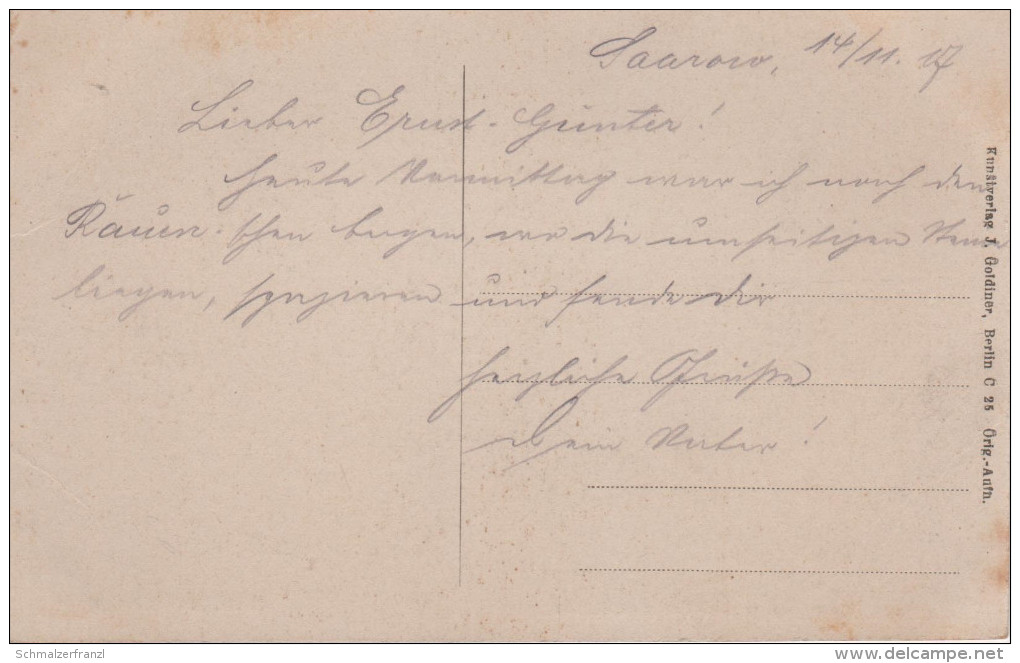 Saarow, 14/11. 17
Lieber Ernst-Günter!
Heute Vormittag war ich nach den
Rauen-schen Bergen, wo die umseitigen Steine
liegen, spazieren und sende Dir
herzliche Grüße
Dein Vater!
Kunstverlag J. Goldiner, Berlin C 25 Orig.-Aufn.
Schmalzerfranzl
delcampe.net